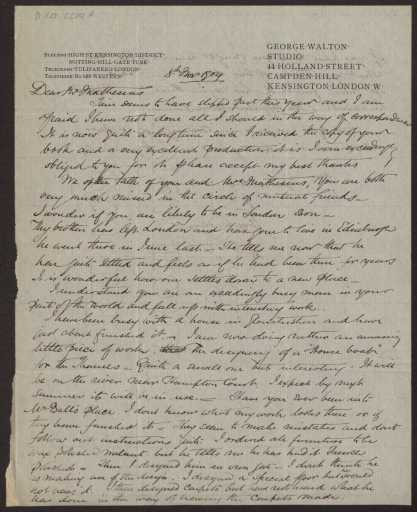 STATION: HIGH ST. KENSINGTON (DISTRICT)
NOTTING HILL GATE TUBE
TELEGRAMS:
TELEPHONE: WESTERN
GEORGE WALTON
STUDIO
44 HOLLAND STREET
CAMPDEN HILL
KENSINGTON LONDON W
8th Nov 1904
Dear Mr Muthesius
Time seems to have slipped past this year and I am
afraid I have not done all I should in the way of correspondence
It is now quite a long time since I received the copy of your
book and a very excellent production it is. I am exceedingly
obliged to you for it. Please accept my best thanks
We often talk of you and Mrs Muthesius. You are both
very much missed in the circle of mutual friends.
I wonder if you are likely to be in London soon.
My brother has left London and has gone to live in Edinburgh
he went there in June last. He tells me now that he
has just settled and feels as if he had been there for years
It is wonderful how one settles down to a new place.
I understand you are an exceedingly busy man in your
part of the world and full up with interesting work.
I have been busy with a house in and have
just about finished it. I am now doing rather an amusing
little piece of work the designing of a "House boat"
for the Thames. Quite a small one but interesting. It will
be on the river near Hampton Court. I expect by next
summer it will be in use. Have you ever been into
Mr place I don't know what my work looks there or if
they have finished it. They seem to make mistakes and don't
follow out instructions quite. I ordered all furniture to be
walnut but he tells me he has had it
Then I designed him an I think he
is making use of the design. I designed a special floor but
not used it. I then designed carpets but have not heard what he
has done in the way of having the carpets made.